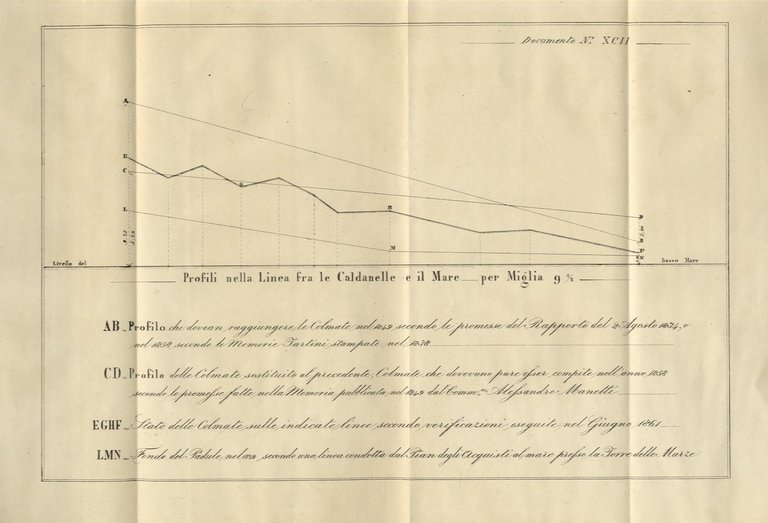 Documento N.º XCII
A
E
C
G
L
H
M
Livello del
basso Mare
Profili nella Linea fra le Caldanelle e il Mare per Miglia 9 ½
AB_Profilo che dovean raggiungere le Colmate nel 1842 secondo le promesse del Rapporto del 2 Agosto 1834, o
nel 1858, secondo le Memorie Tartini, stampate nel 1838
CD_Profilo delle Colmate sostituito al precedente, Colmate che dovevano pure esser compite nell'anno 1858
secondo le promesse fatte nella Memoria pubblicata nel 1849 dal Comm.re Alessandro Manetti
EGHF_Stato delle Colmate sulle indicate linee secondo verificazioni eseguite nel Giugno 1861
LMN_Fondo del Padule nel secondo una linea condotta dal Pian degli Acquisti al mare presso la Torre delle Marze